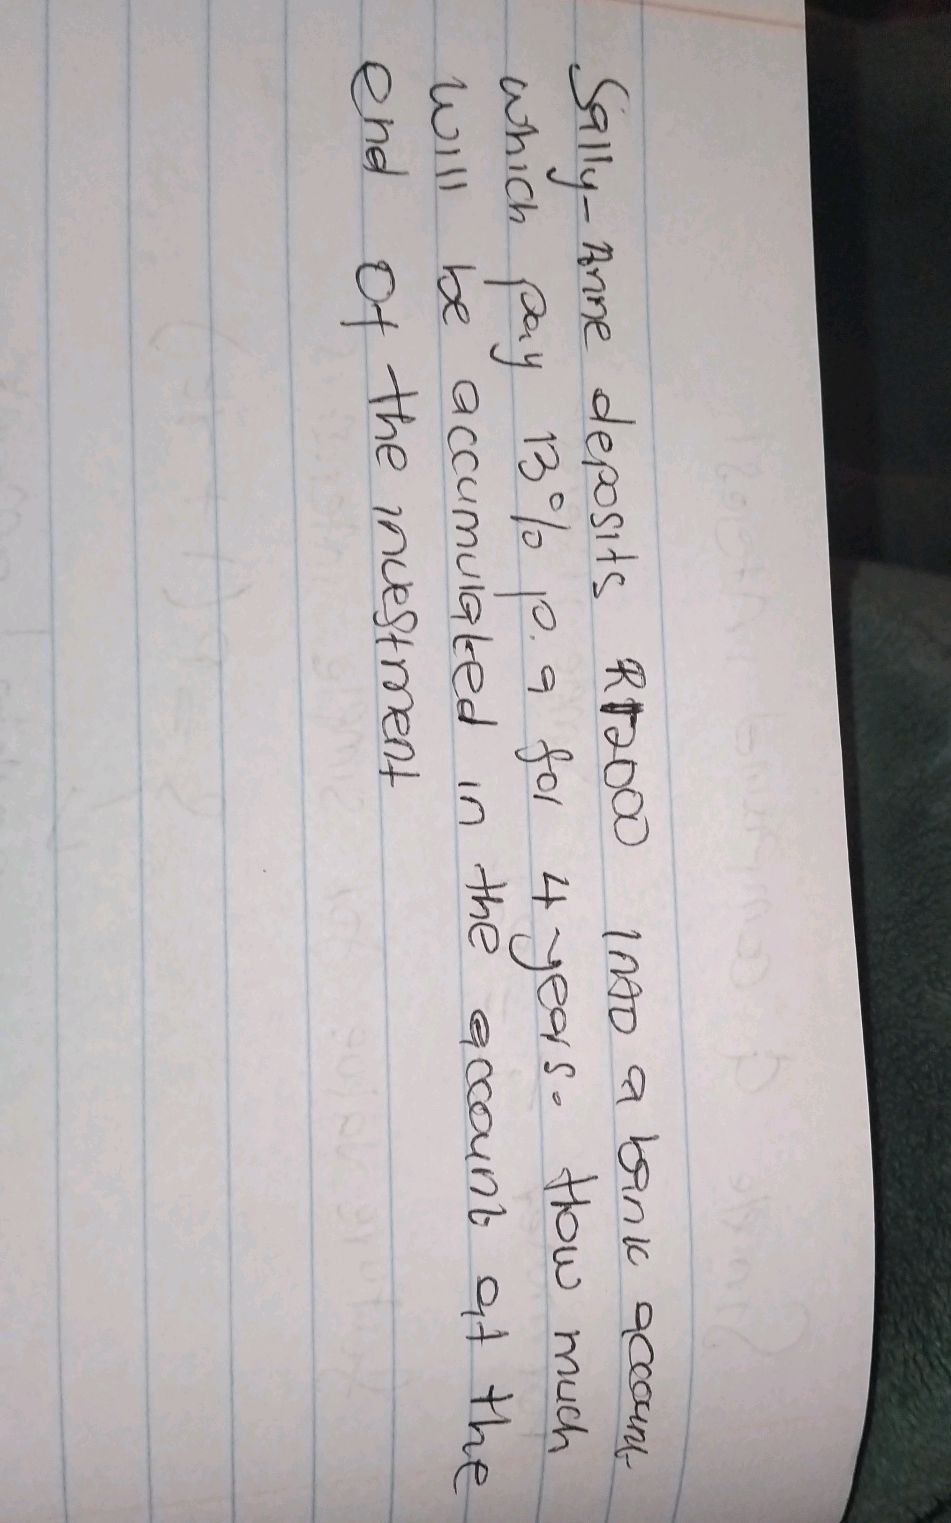 Sally-Anne deposits R12000 into a bank account
which pay 13% p.a for 4 years. How much
will be accumulated in the account at the
end of the investment